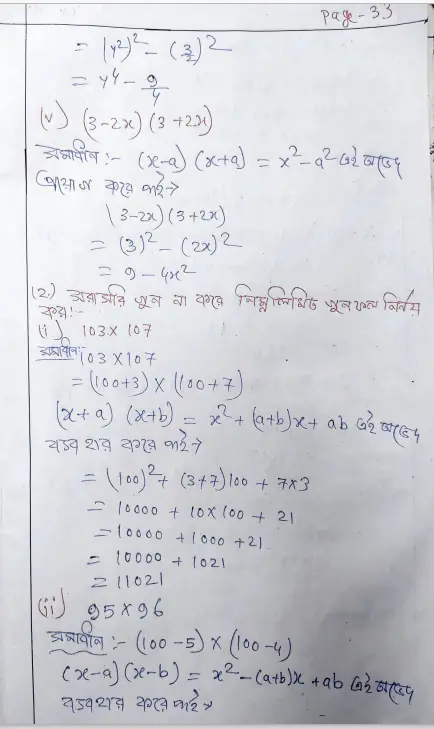 Page-33
= (y²)² - (3/2)²
= y⁴ - 9/4
(v) (3-2x) (3+2x)
সমাধান:- (x-a) (x+a) = x² - a² এই অভেদ
প্রয়োগ করে পাই→
(3-2x) (3+2x)
= (3)² - (2x)²
= 9 - 4x²
(2.) সরাসরি গুন না করে নিম্নলিখিত গুনফল নির্ণয়
করা:-
(i) 103 x 107
সমাধান:- 103 X 107
= (100+3) X (100+7)
(x+a) (x+b) = x² + (a+b)x + ab এই অভেদ
ব্যবহার করে পাই→
= (100)² + (3+7)100 + 7X3
= 10000 + 10X100 + 21
= 10000 + 1000 + 21
= 10000 + 1021
= 11021
(ii) 95 X 96
সমাধান:- (100-5) X (100-4)
(x-a) (x-b) = x² - (a+b)x + ab এই অভেদ
ব্যবহার করে পাই→